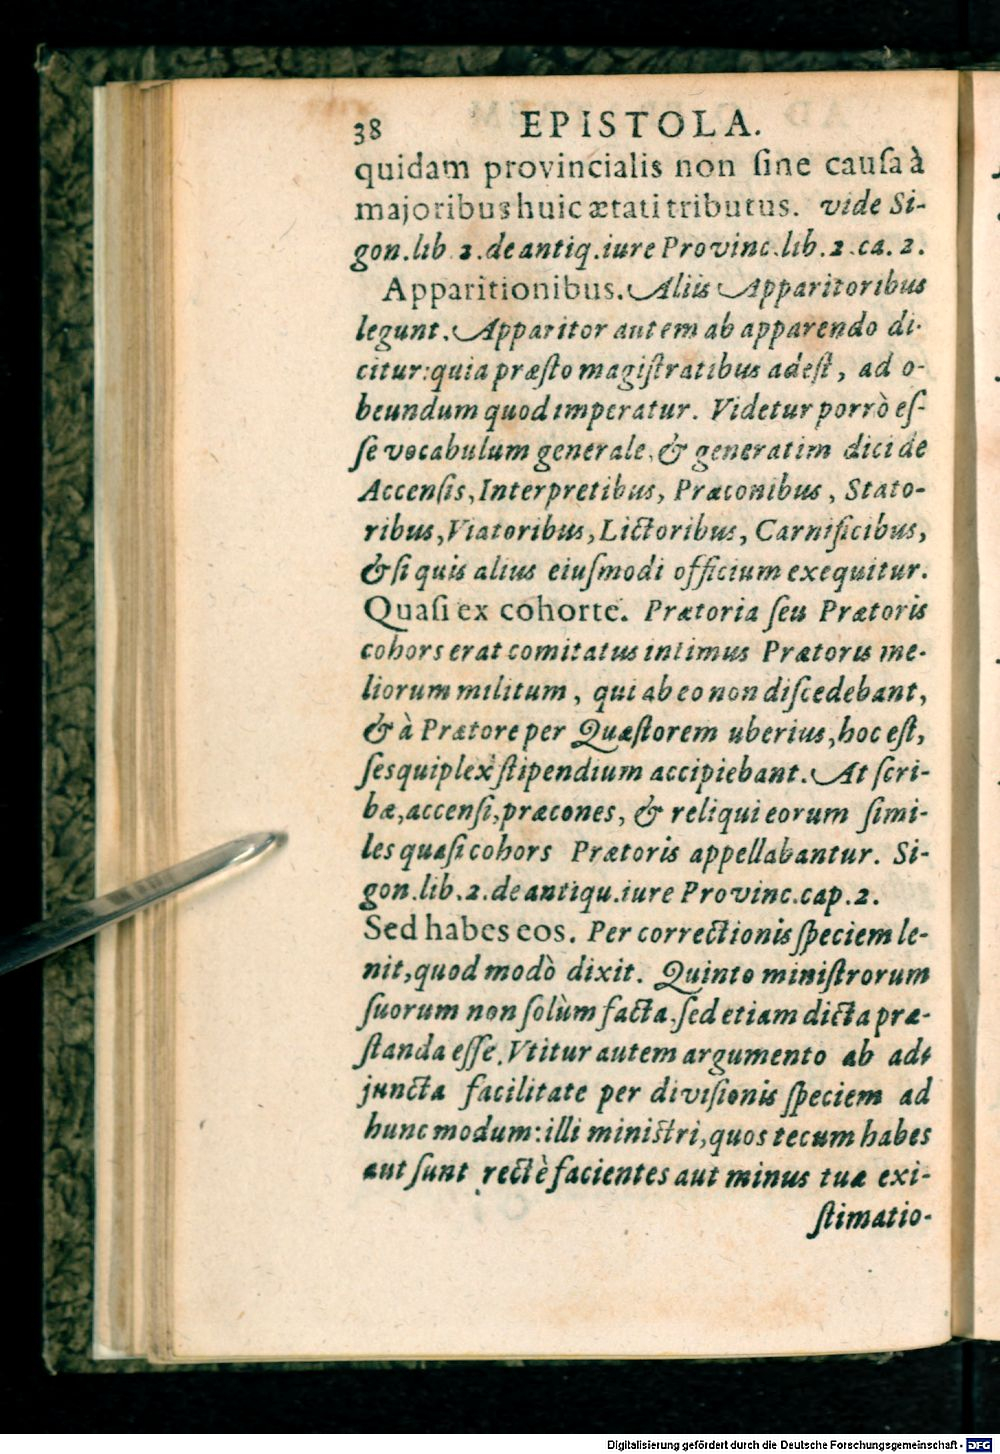 38 EPISTOLA.
quidam provincialis non ſine cauſa à
majoribus huic ætati tributus. vide Si-
gon.lib.2.de antiq.iure Provinc.lib.2.ca.2.
Apparitionibus. Aliis Apparitoribus
legunt. Apparitor autem ab apparendo di-
citur: quia præſto magiſtratibus adeſt, ad o-
beundum quod imperatur. Videtur porrò eſ-
ſe vocabulum generale, & generatim dici de
Accenſis, Interpretibus, Præconibus, Stato-
ribus, Viatoribus, Lictoribus, Carnificibus,
& ſi quis alius eiuſmodi officium exequitur.
Quaſi ex cohorte. Prætoria ſeu Prætoris
cohors erat comitatus intimus Prætoris me-
liorum militum, qui ab eo non diſcedebant,
& à Prætore per Quæſtorem uberius, hoc eſt,
ſesquiplex ſtipendium accipiebant. At ſcri-
bæ, accenſi, præcones, & reliqui eorum ſimi-
les quaſi cohors Prætoris appellabantur. Si-
gon.lib.2.de antiqu.iure Provinc.cap.2.
Sed habes eos. Per correctionis ſpeciem le-
nit, quod modò dixit. Quinto miniſtrorum
ſuorum non ſolùm facta, ſed etiam dicta præ-
ſtanda eſſe. Vtitur autem argumento ab ad-
juncta facilitate per diviſionis ſpeciem ad
hunc modum: illi miniſtri, quos tecum habes
aut ſunt rectè facientes aut minus tuæ exi-
ſtimatio-
Digitalisierung gefördert durch die Deutsche Forschungsgemeinschaft - DFG